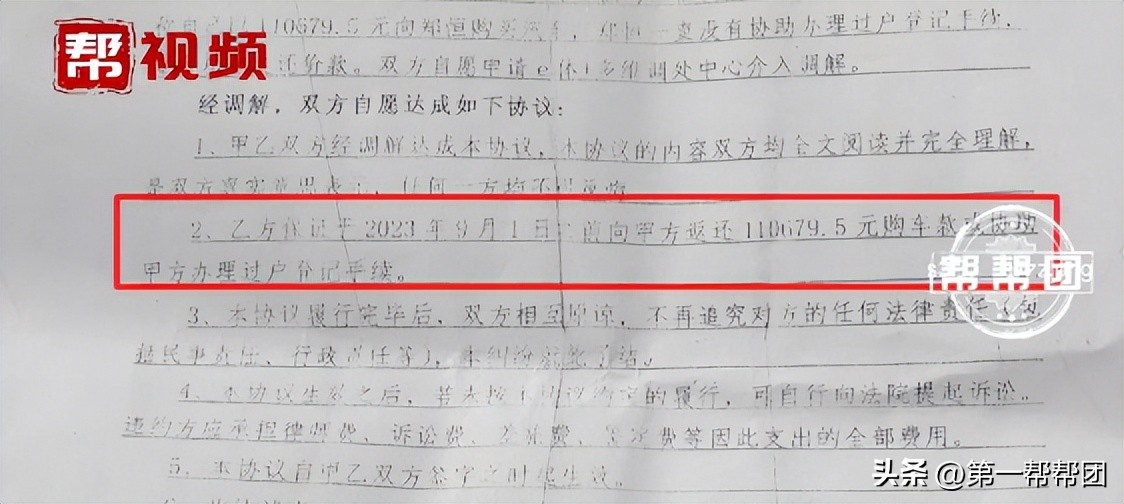 帮视频
110679.5元向郑恒购买汽车，郑恒一直没有协助办理过户登记手续，
还价款。双方自愿申请e体+多维调处中心介入调解。
经调解，双方自愿达成如下协议：
1、甲乙双方经调解达成本协议，本协议的内容双方均全文阅读并完全理解，
是双方真实意思表示，任何一方均不得反悔。
2、乙方保证于2023年9月1日 前向甲方返还110679.5元购车款 协助
甲方办理过户登记手续。
3、本协议履行完毕后，双方相互原谅，不再追究对方的任何法律责任（包
括民事责任、行政责任等），本纠纷就此了结。
4、本协议生效之后，若未按本协议约定的履行，可自行向法院提起诉讼。
违约方应承担律师费、诉讼费、差旅费、鉴定费等因此支出的全部费用。
5、本协议自甲乙双方签字之时起生效。
帮帮团
头条 @第一帮帮团